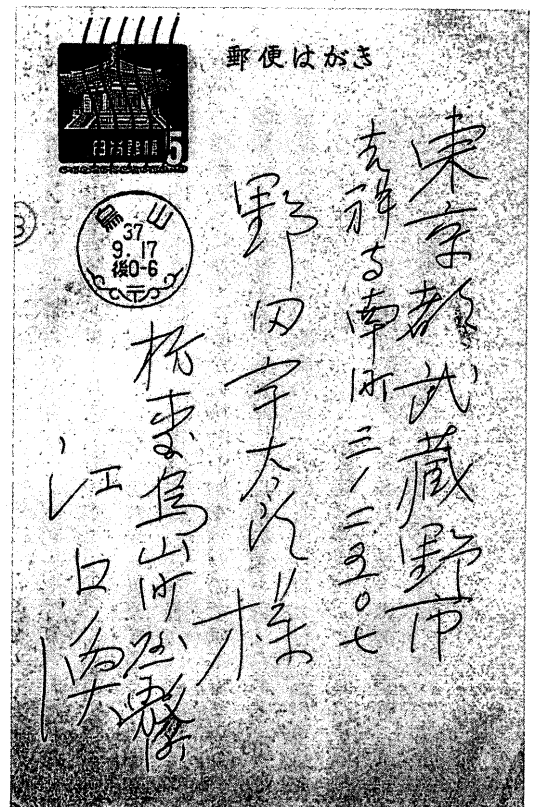 郵便はがき
5
烏山
37
9.17
後0-6
東京都武蔵野市
吉祥寺南町三ノ二五〇七
野田宇太郎様
栃木烏山町
江口渙